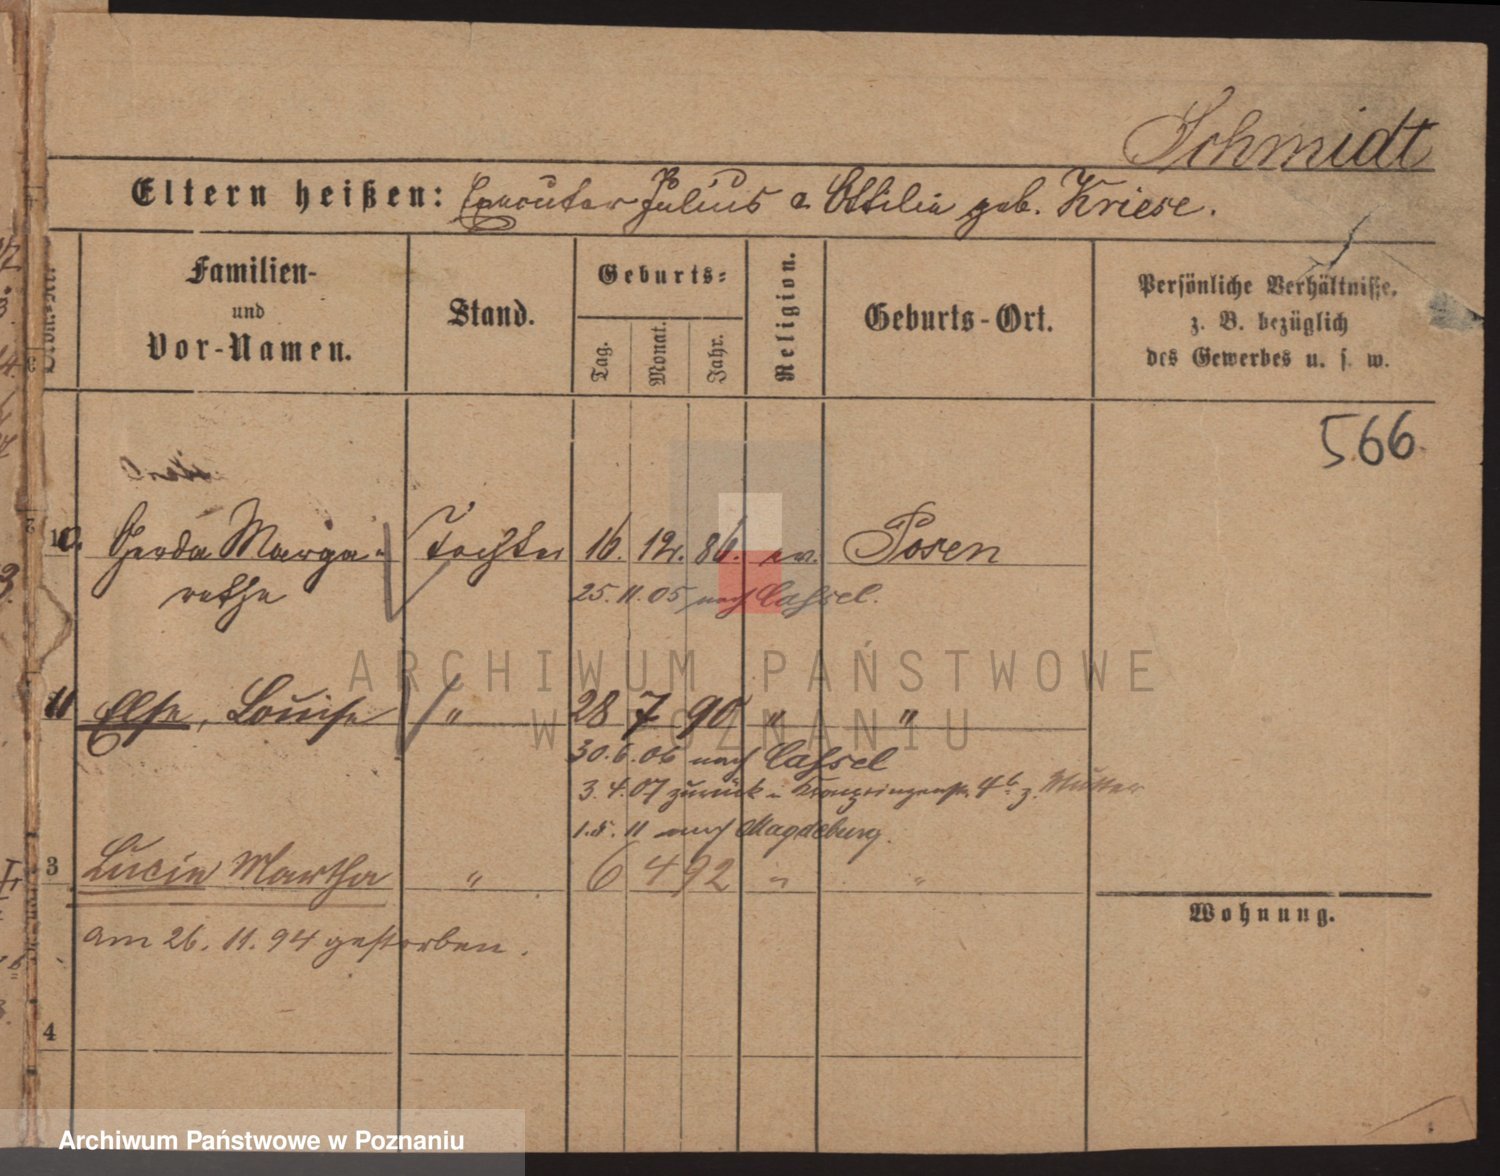 Schmidt
Eltern heißen: Executor Julius u. Ottilie geb. Kriese.
Familien-
und
Vor-Namen.
Stand.
Geburts-
Tag.
Monat.
Jahr.
Religion.
Geburts-Ort.
Persönliche Verhältnisse,
z. B. bezüglich
des Gewerbes u. s. w.
566
10. Gerda Marga- Tochter 16. 12. 86. ev. Posen
rethe
25. 11. 05 nach Cassel.
11 Else, Louise " 28 7 90 " "
30. 6. 06 nach Cassel
3. 4. 07 zurück Kronprinzenstr. 4b z. Mutter
1. 5. 11 nach Magdeburg.
3 Lucie Martha " 6 4 92 " "
Wohnung.
am 26. 11. 94 gestorben.
4
ARCHIWUM PAŃSTWOWE
W POZNANIU
Archiwum Państwowe w Poznaniu